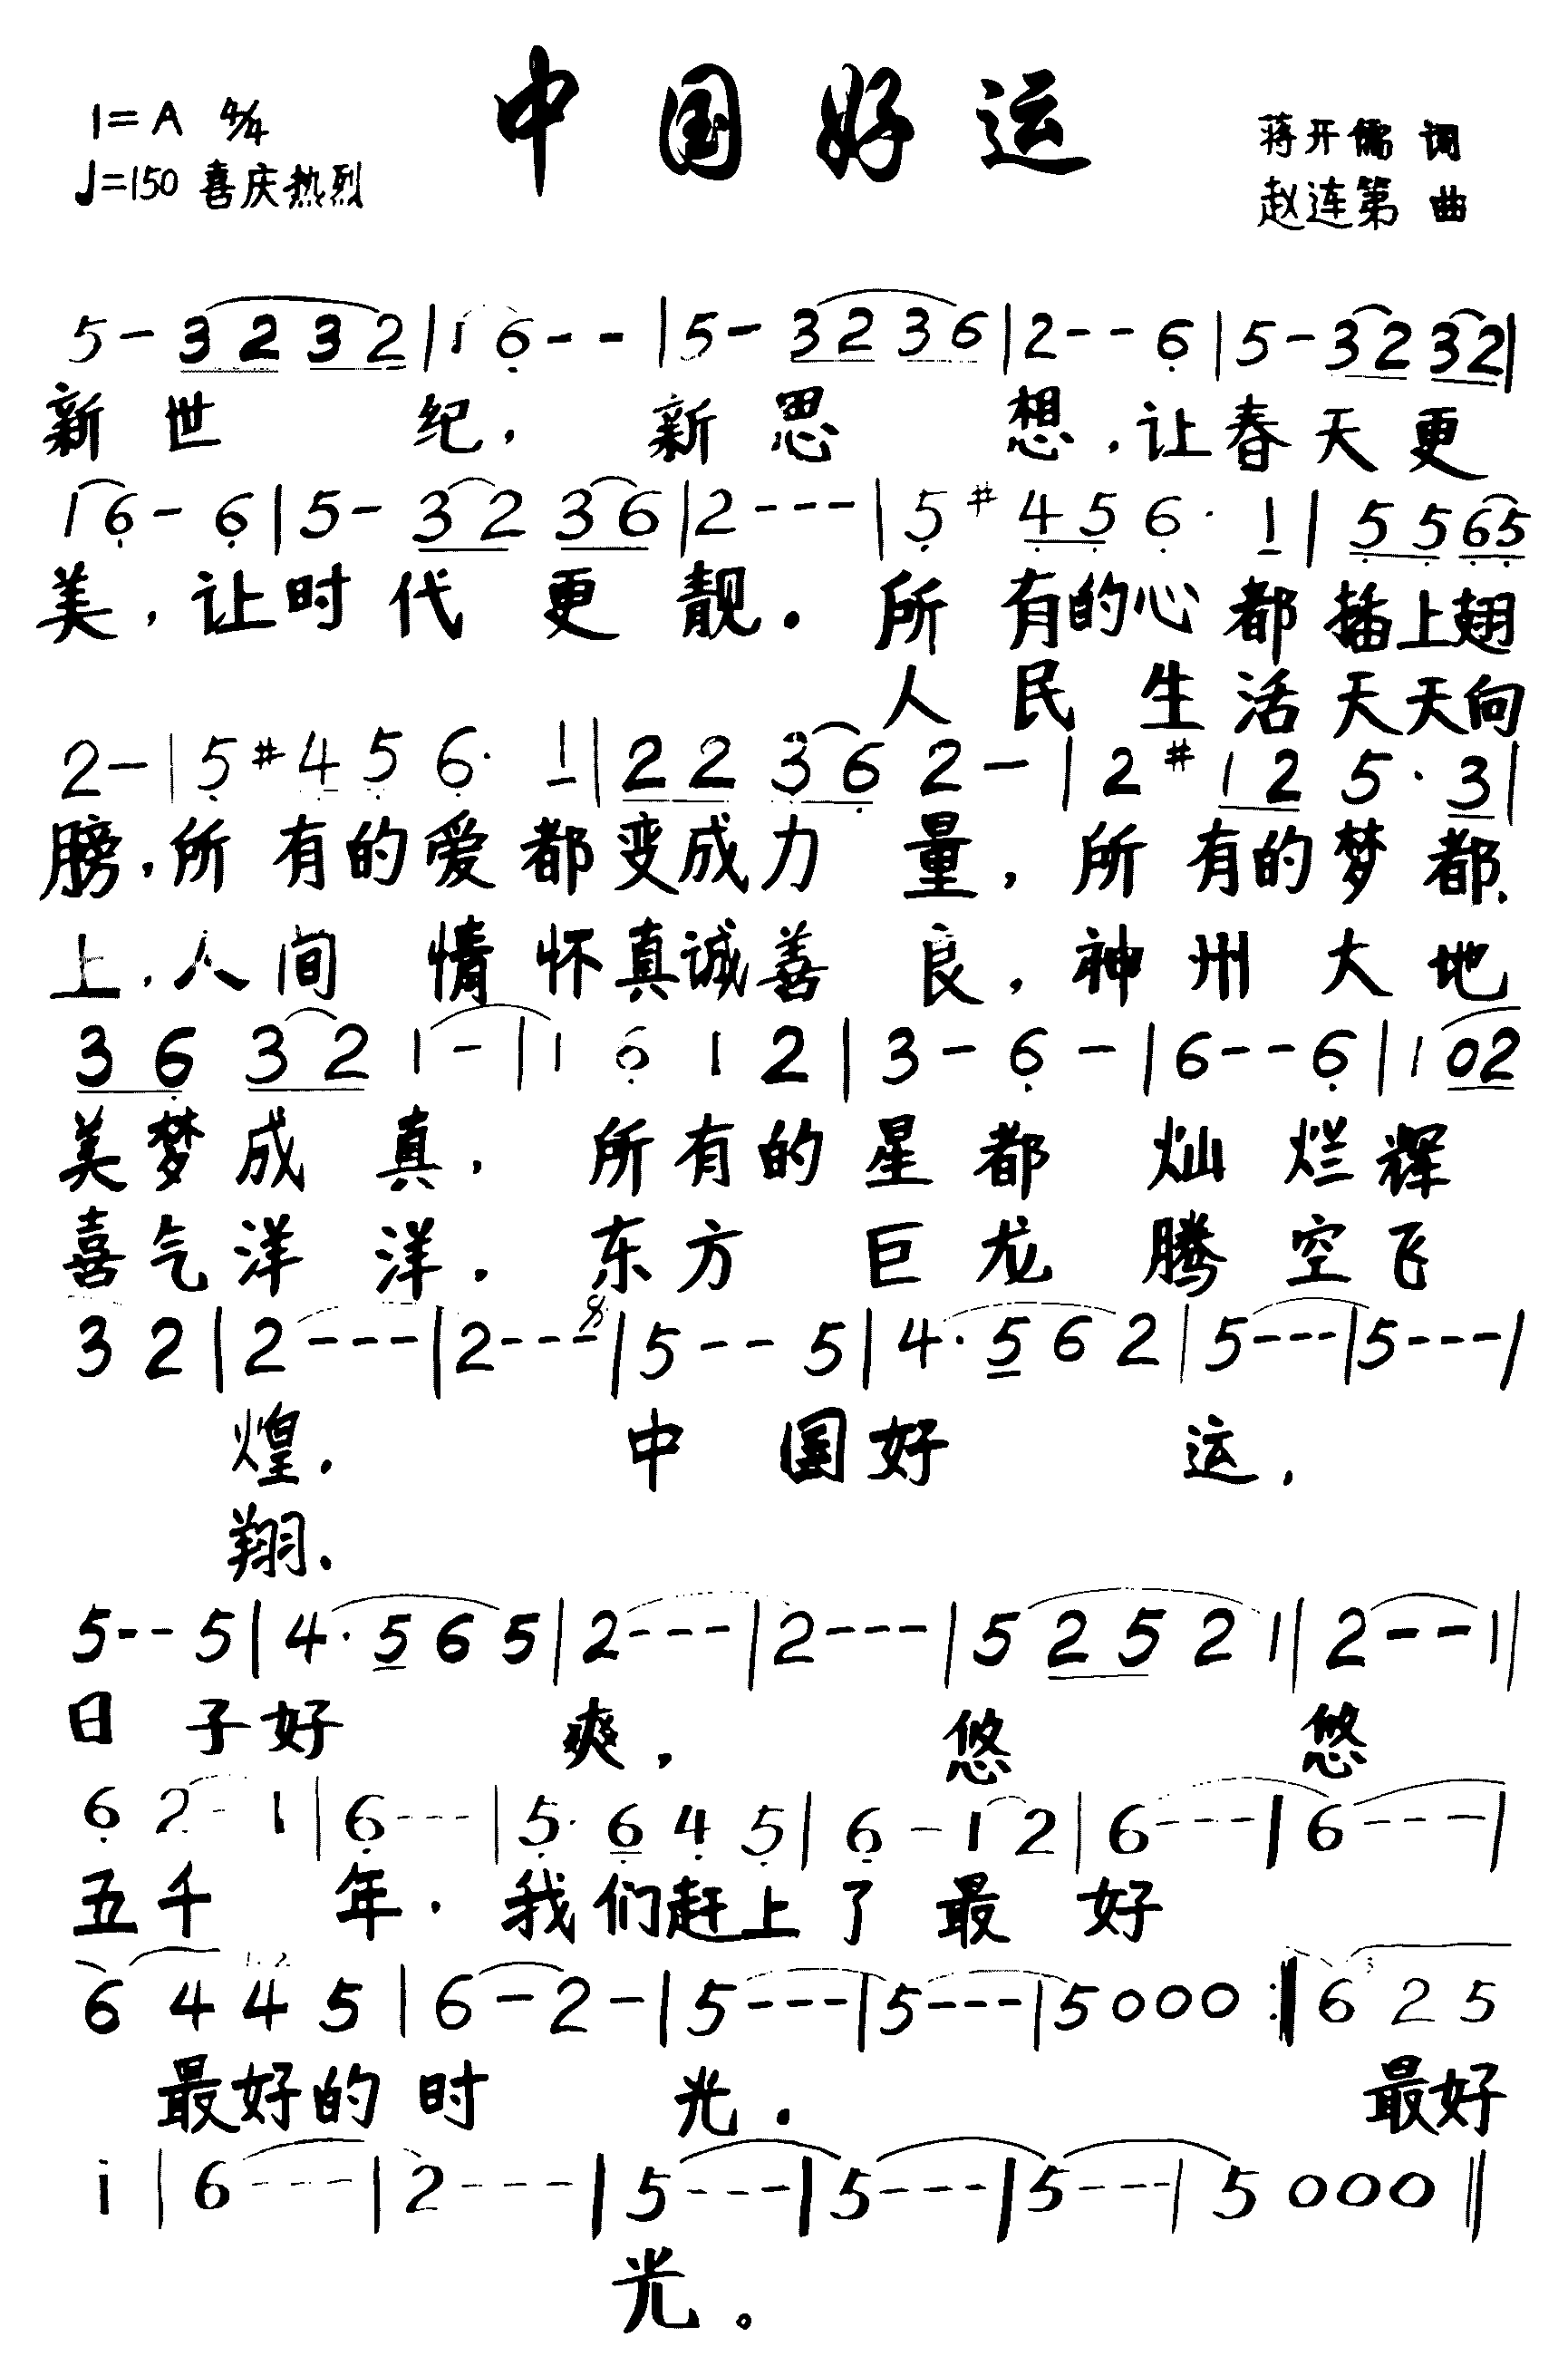 中国好运
1=A 4/4
♩=150 喜庆热烈
蒋开儒 词
赵连第 曲
5 - 3 2 3 2 | 1 6 - - | 5 - 3 2 3 6 | 2 - - 6 | 5 - 3 2 3 2 |
新世纪,新思想,让春天更
1 6 - 6 | 5 - 3 2 3 6 | 2 - - - | 5 #4 5 6 · 1 | 5 5 6 5
美,让时代更靓.所有的心都插上翅
人民生活天天向
2 - | 5 #4 5 6 · 1 | 2 2 3 6 2 - | 2 #1 2 5 · 3 |
膀,所有的爱都变成力量,所有的梦都.
上,人间情怀真诚善良,神州大地
3 6 3 2 1 - | 1 6 1 2 | 3 - 6 - | 6 - - 6 | 1 0 2
美梦成真,所有的星都灿烂辉
喜气洋洋.东方巨龙腾空飞
3 2 | 2 - - - | 2 - - - | 5 - - 5 | 4 · 5 6 2 | 5 - - - | 5 - - - |
煌.中国好运,
翔.
5 - - 5 | 4 · 5 6 5 | 2 - - - | 2 - - - | 5 2 5 2 1 | 2 - - 1 |
日子好爽,悠悠
6 2 - 1 | 6 - - - | 5 · 6 4 5 | 6 - 1 2 | 6 - - - | 6 - - - |
五千年.我们赶上了最好
6 4 4 5 | 6 - 2 - | 5 - - - | 5 - - - | 5 0 0 0 :‖ 6 2 5
最好的时光.最好
i | 6 - - - | 2 - - - | 5 - - - | 5 - - - | 5 - - - | 5 0 0 0 ‖
光。